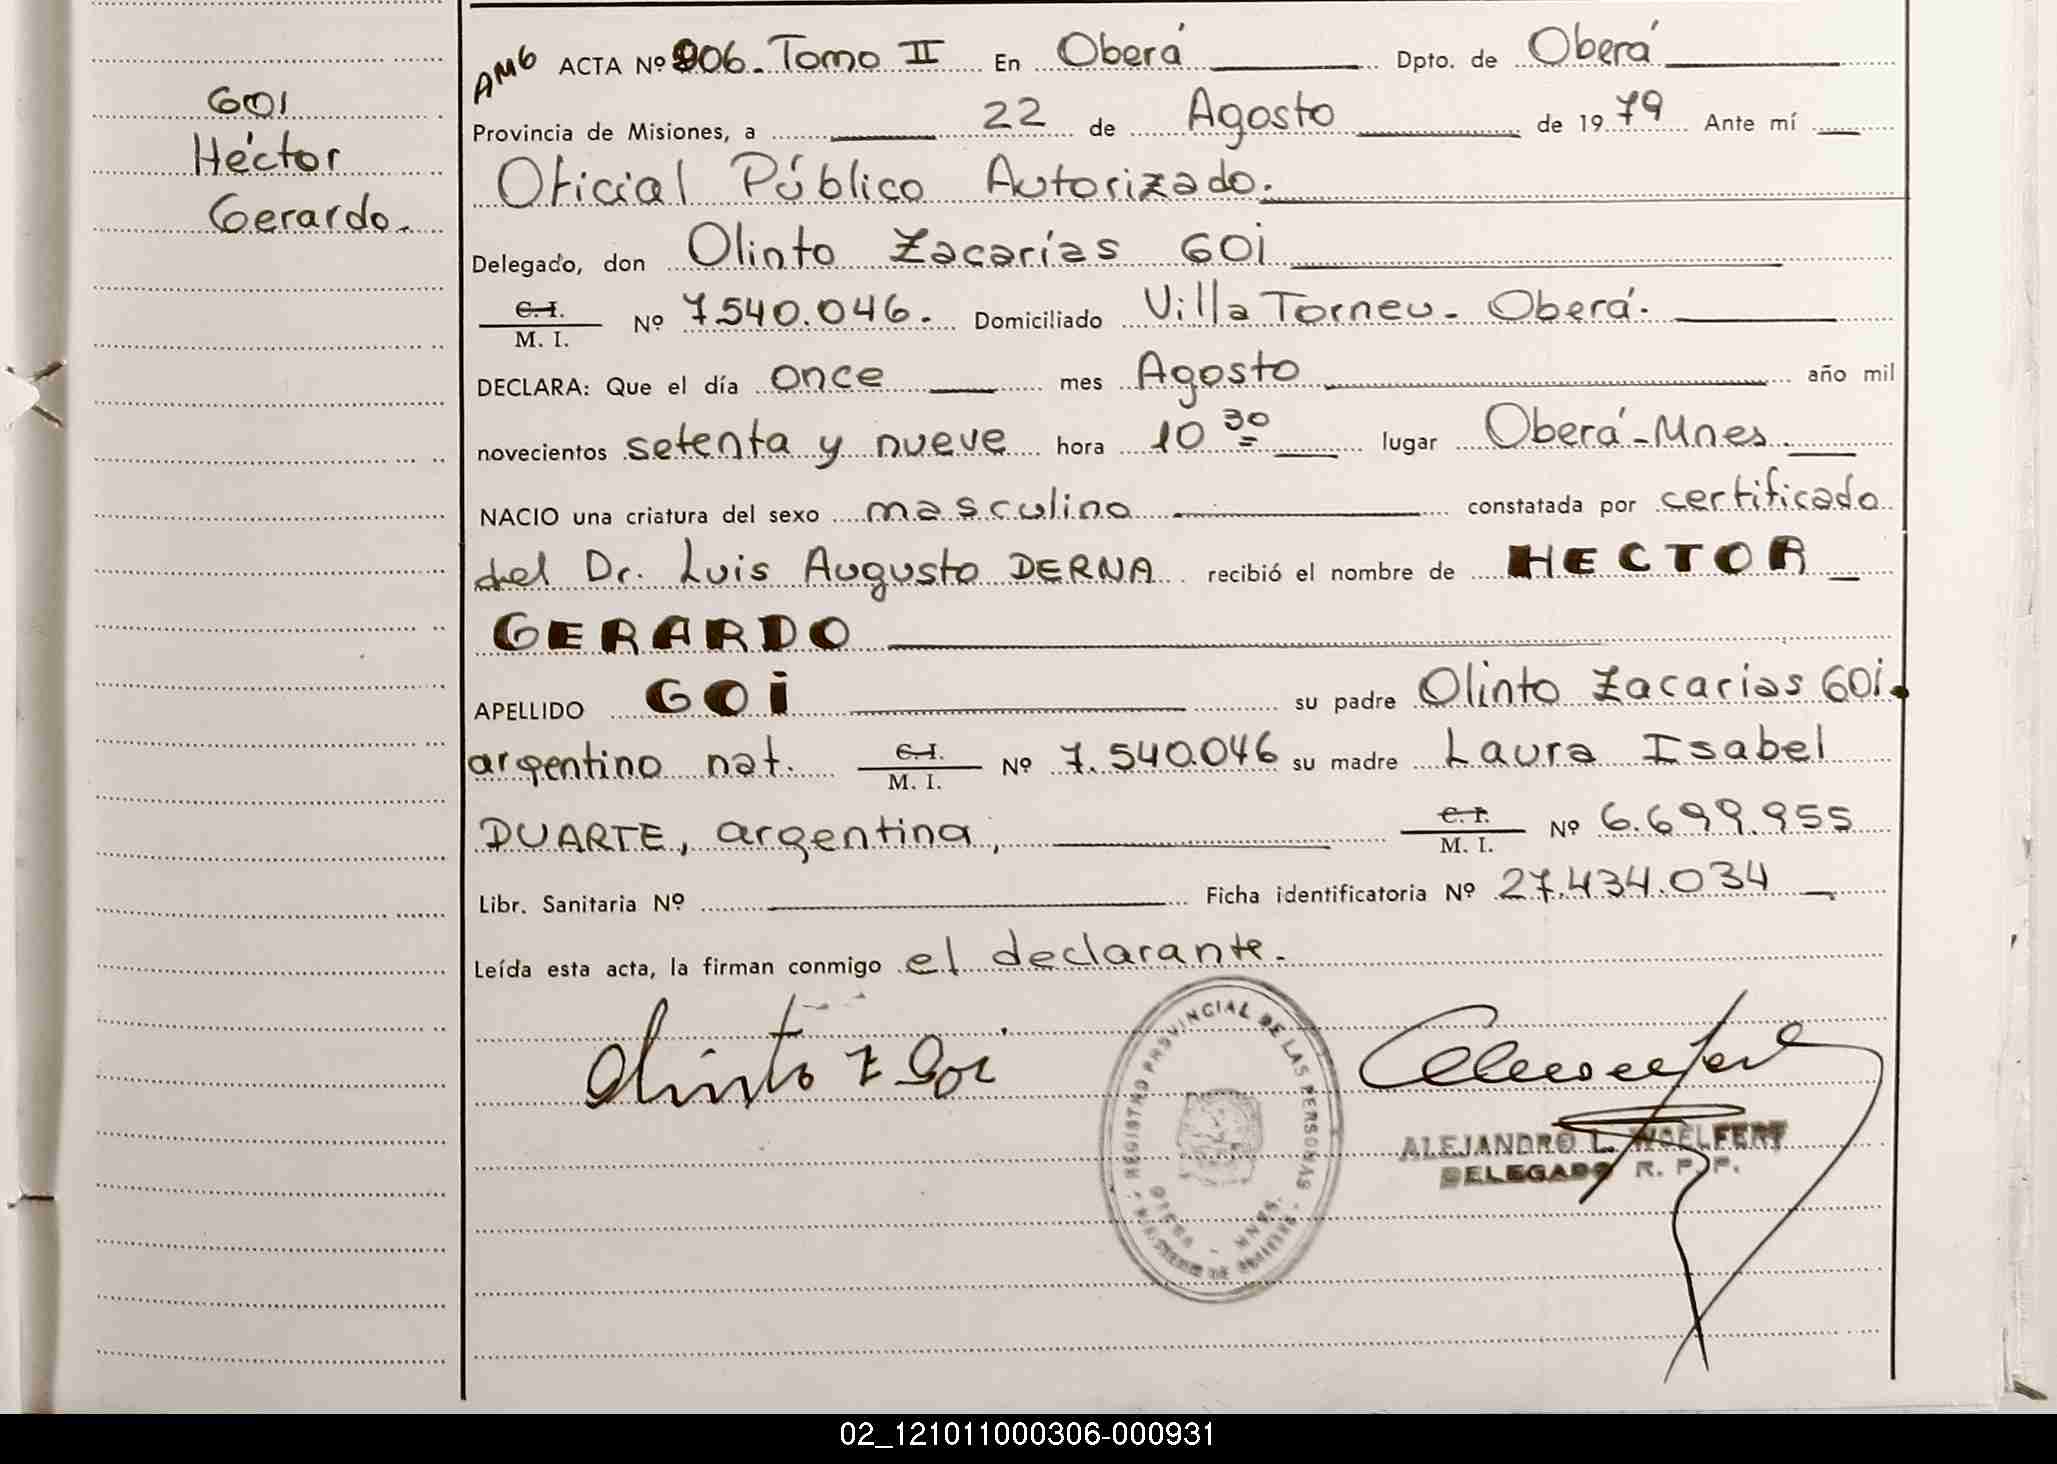 GOI
Héctor
Gerardo.
AMG ACTA Nº 906. Tomo II En Oberá Dpto. de Oberá
Provincia de Misiones, a 22 de Agosto de 1979 Ante mí
Oficial Público Autorizado.
Delegado, don Olinto Zacarías GOi
C.I. M. I. Nº 7.540.046. Domiciliado Villa Torneu - Oberá.
DECLARA: Que el día once mes Agosto año mil
novecientos setenta y nueve hora 10 30 lugar Oberá - Mnes.
NACIO una criatura del sexo masculino constatada por certificado
del Dr. Luis Augusto DERNA recibió el nombre de HECTOR
GERARDO
APELLIDO GOi su padre Olinto Zacarias GOi.
argentino nat. C.I. M. I. Nº 7.540.046 su madre Laura Isabel
DUARTE, argentina, C.I. M. I. Nº 6.699.955
Libr. Sanitaria Nº Ficha identificatoria Nº 27.434.034
Leída esta acta, la firman conmigo el declarante.
Olinto Z Goi
REGISTRO PROVINCIAL DE LAS PERSONAS
MNES.
ALEJANDRO L. WOELFERT
DELEGADO R. P. P.
02_121011000306-000931